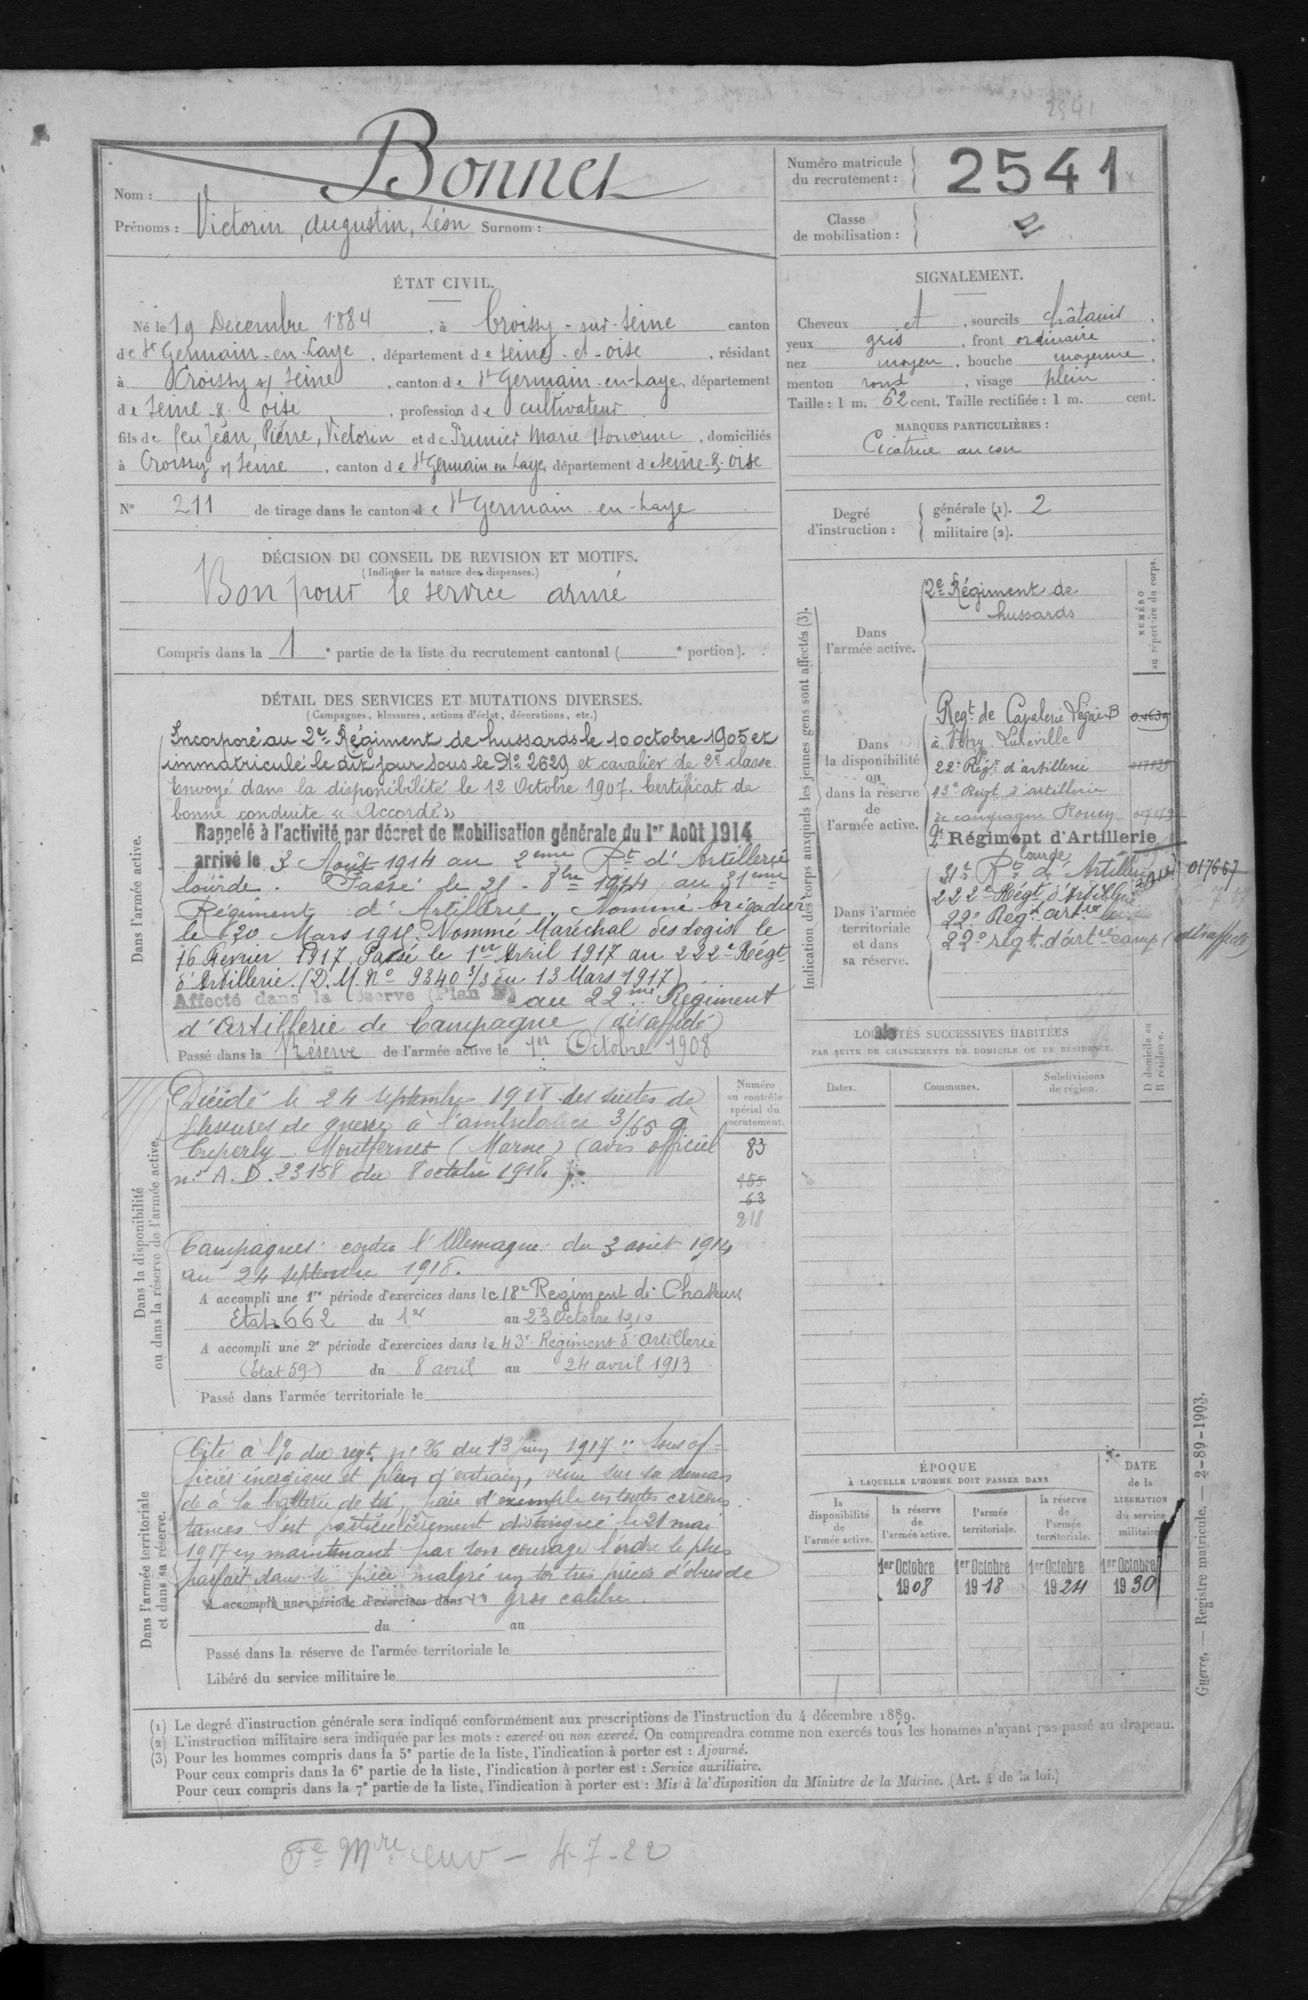 2541
Nom : Bonnet
Prénoms : Victorin, Augustin, Léon Surnom :
Numéro matricule du recrutement : 2541
Classe de mobilisation :
ÉTAT CIVIL.
Né le 19 Décembre 1884, à Croissy-sur-Seine canton
de St Germain-en-Laye, département de Seine-et-Oise, résidant
à Croissy s/ Seine, canton de St Germain-en-Laye, département
de Seine-&-Oise, profession de cultivateur
fils de feu Jean, Pierre, Victorin et de Prunier Marie Honorine, domiciliés
à Croissy s/ Seine, canton de St Germain en Laye, département de Seine-&-Oise
N° 211 de tirage dans le canton de St Germain-en-Laye
SIGNALEMENT.
Cheveux et, sourcils châtains,
yeux gris, front ordinaire,
nez moyen, bouche moyenne,
menton rond, visage plein.
Taille : 1 m. 62 cent. Taille rectifiée : 1 m. cent.
MARQUES PARTICULIÈRES :
Cicatrice au cou
Degré d'instruction : générale (1). 2
militaire (2).
DÉCISION DU CONSEIL DE REVISION ET MOTIFS.
(Indiquer la nature des dispenses.)
Bon pour le service armé
Compris dans la 1e partie de la liste du recrutement cantonal ( e portion).
DÉTAIL DES SERVICES ET MUTATIONS DIVERSES.
(Campagnes, blessures, actions d'éclat, décorations, etc.)
Dans l'armée active.
Incorporé au 2e Régiment de hussards le 10 octobre 1905 et
immatriculé le dit jour sous le No 2629 et cavalier de 2e classe.
Envoyé dans la disponibilité le 12 Octobre 1907. Certificat de
bonne conduite « Accordé »
Rappelé à l'activité par décret de Mobilisation générale du 1er Août 1914
arrivé le 3 Août 1914 au 2ème Rt d'Artillerie
lourde. Passé le 21 - 8bre 1914 au 31ème
Régiment d'Artillerie. Nommé brigadier
le 20 Mars 1915. Nommé Maréchal des logis le
16 Février 1917. Passé le 1er Avril 1917 au 222e Régt
d'Artillerie. (D.M. No 9340 3/3 du 13 Mars 1917)
Affecté dans la réserve (Plan) au 22me Régiment
d'Artillerie de Campagne (désaffecté)
Passé dans la Réserve de l'armée active le 1er Octobre 1908
Dans la disponibilité ou dans la réserve de l'armée active.
Décédé le 24 septembre 1918 des suites de
blessures de guerre à l'ambulance 3/65 à
Cuperly - Montfernet (Marne) (avis officiel
no A.D. 23158 du 8 octobre 1918).
Campagnes : contre l'Allemagne : du 3 août 1914
au 24 septembre 1918.
A accompli une 1re période d'exercices dans le 18e Régiment de Chasseurs
Etat 662 du 1er au 23 Octobre 1910
A accompli une 2e période d'exercices dans le 43e Régiment d'Artillerie
(Etat 59) du 8 avril au 24 avril 1913
Passé dans l'armée territoriale le
Numéro au contrôle spécial du recrutement.
83
155
63
218
Dans l'armée territoriale et dans sa réserve.
Cité à l'% du régt no 26 du 13 juin 1917 : Sous of-
ficier énergique et plein d'entrain, venu sur sa deman
de à la batterie de tir, paie d'exemple en toutes circons
tances. S'est particulièrement distingué le 21 mai
1917 en maintenant par son courage l'ordre le plus
parfait dans sa pièce malgré un tir très précis d'obus de
gros calibre.
A accompli une période d'exercices dans
du au
Passé dans la réserve de l'armée territoriale le
Libéré du service militaire le
Indication des corps auxquels les jeunes gens sont affectés (3).
NUMÉRO au répertoire du corps.
Dans l'armée active.
2e Régiment de
hussards
Dans la disponibilité ou dans la réserve de l'armée active.
Regt de Cavalerie Légère B
à Vitry Lunéville
22e Régt d'artillerie
43e Regt d'artillerie
de campagne Rouen
2e Régiment d'Artillerie
Lourde
Dans l'armée territoriale et dans sa réserve.
31e Rt d'Artillerie 017667
222e Régt d'Artillerie
22e Régt Artie
22e régt d'artie camp (désaffecté)
LOCALITÉS SUCCESSIVES HABITÉES
PAR SUITE DE CHANGEMENTS DE DOMICILE OU DE RÉSIDENCE.
Dates. Communes. Subdivisions de région. D domicile ou R résidence.
ÉPOQUE
À LAQUELLE L'HOMME DOIT PASSER DANS
la disponibilité de l'armée active. la réserve de l'armée active. l'armée territoriale. la réserve de l'armée territoriale.
DATE de la LIBÉRATION du service militaire
1er Octobre 1908 1er Octobre 1918 1er Octobre 1924 1er Octobre 1930
Guerre. — Registre matricule. — 2-89-1903.
(1) Le degré d'instruction générale sera indiqué conformément aux prescriptions de l'instruction du 4 décembre 1889.
(2) L'instruction militaire sera indiquée par les mots : exercé ou non exercé. On comprendra comme non exercés tous les hommes n'ayant pas passé au drapeau.
(3) Pour les hommes compris dans la 5e partie de la liste, l'indication à porter est : Ajourné.
Pour ceux compris dans la 6e partie de la liste, l'indication à porter est : Service auxiliaire.
Pour ceux compris dans la 7e partie de la liste, l'indication à porter est : Mis à la disposition du Ministre de la Marine. (Art. 4 de la loi.)
4-7-22